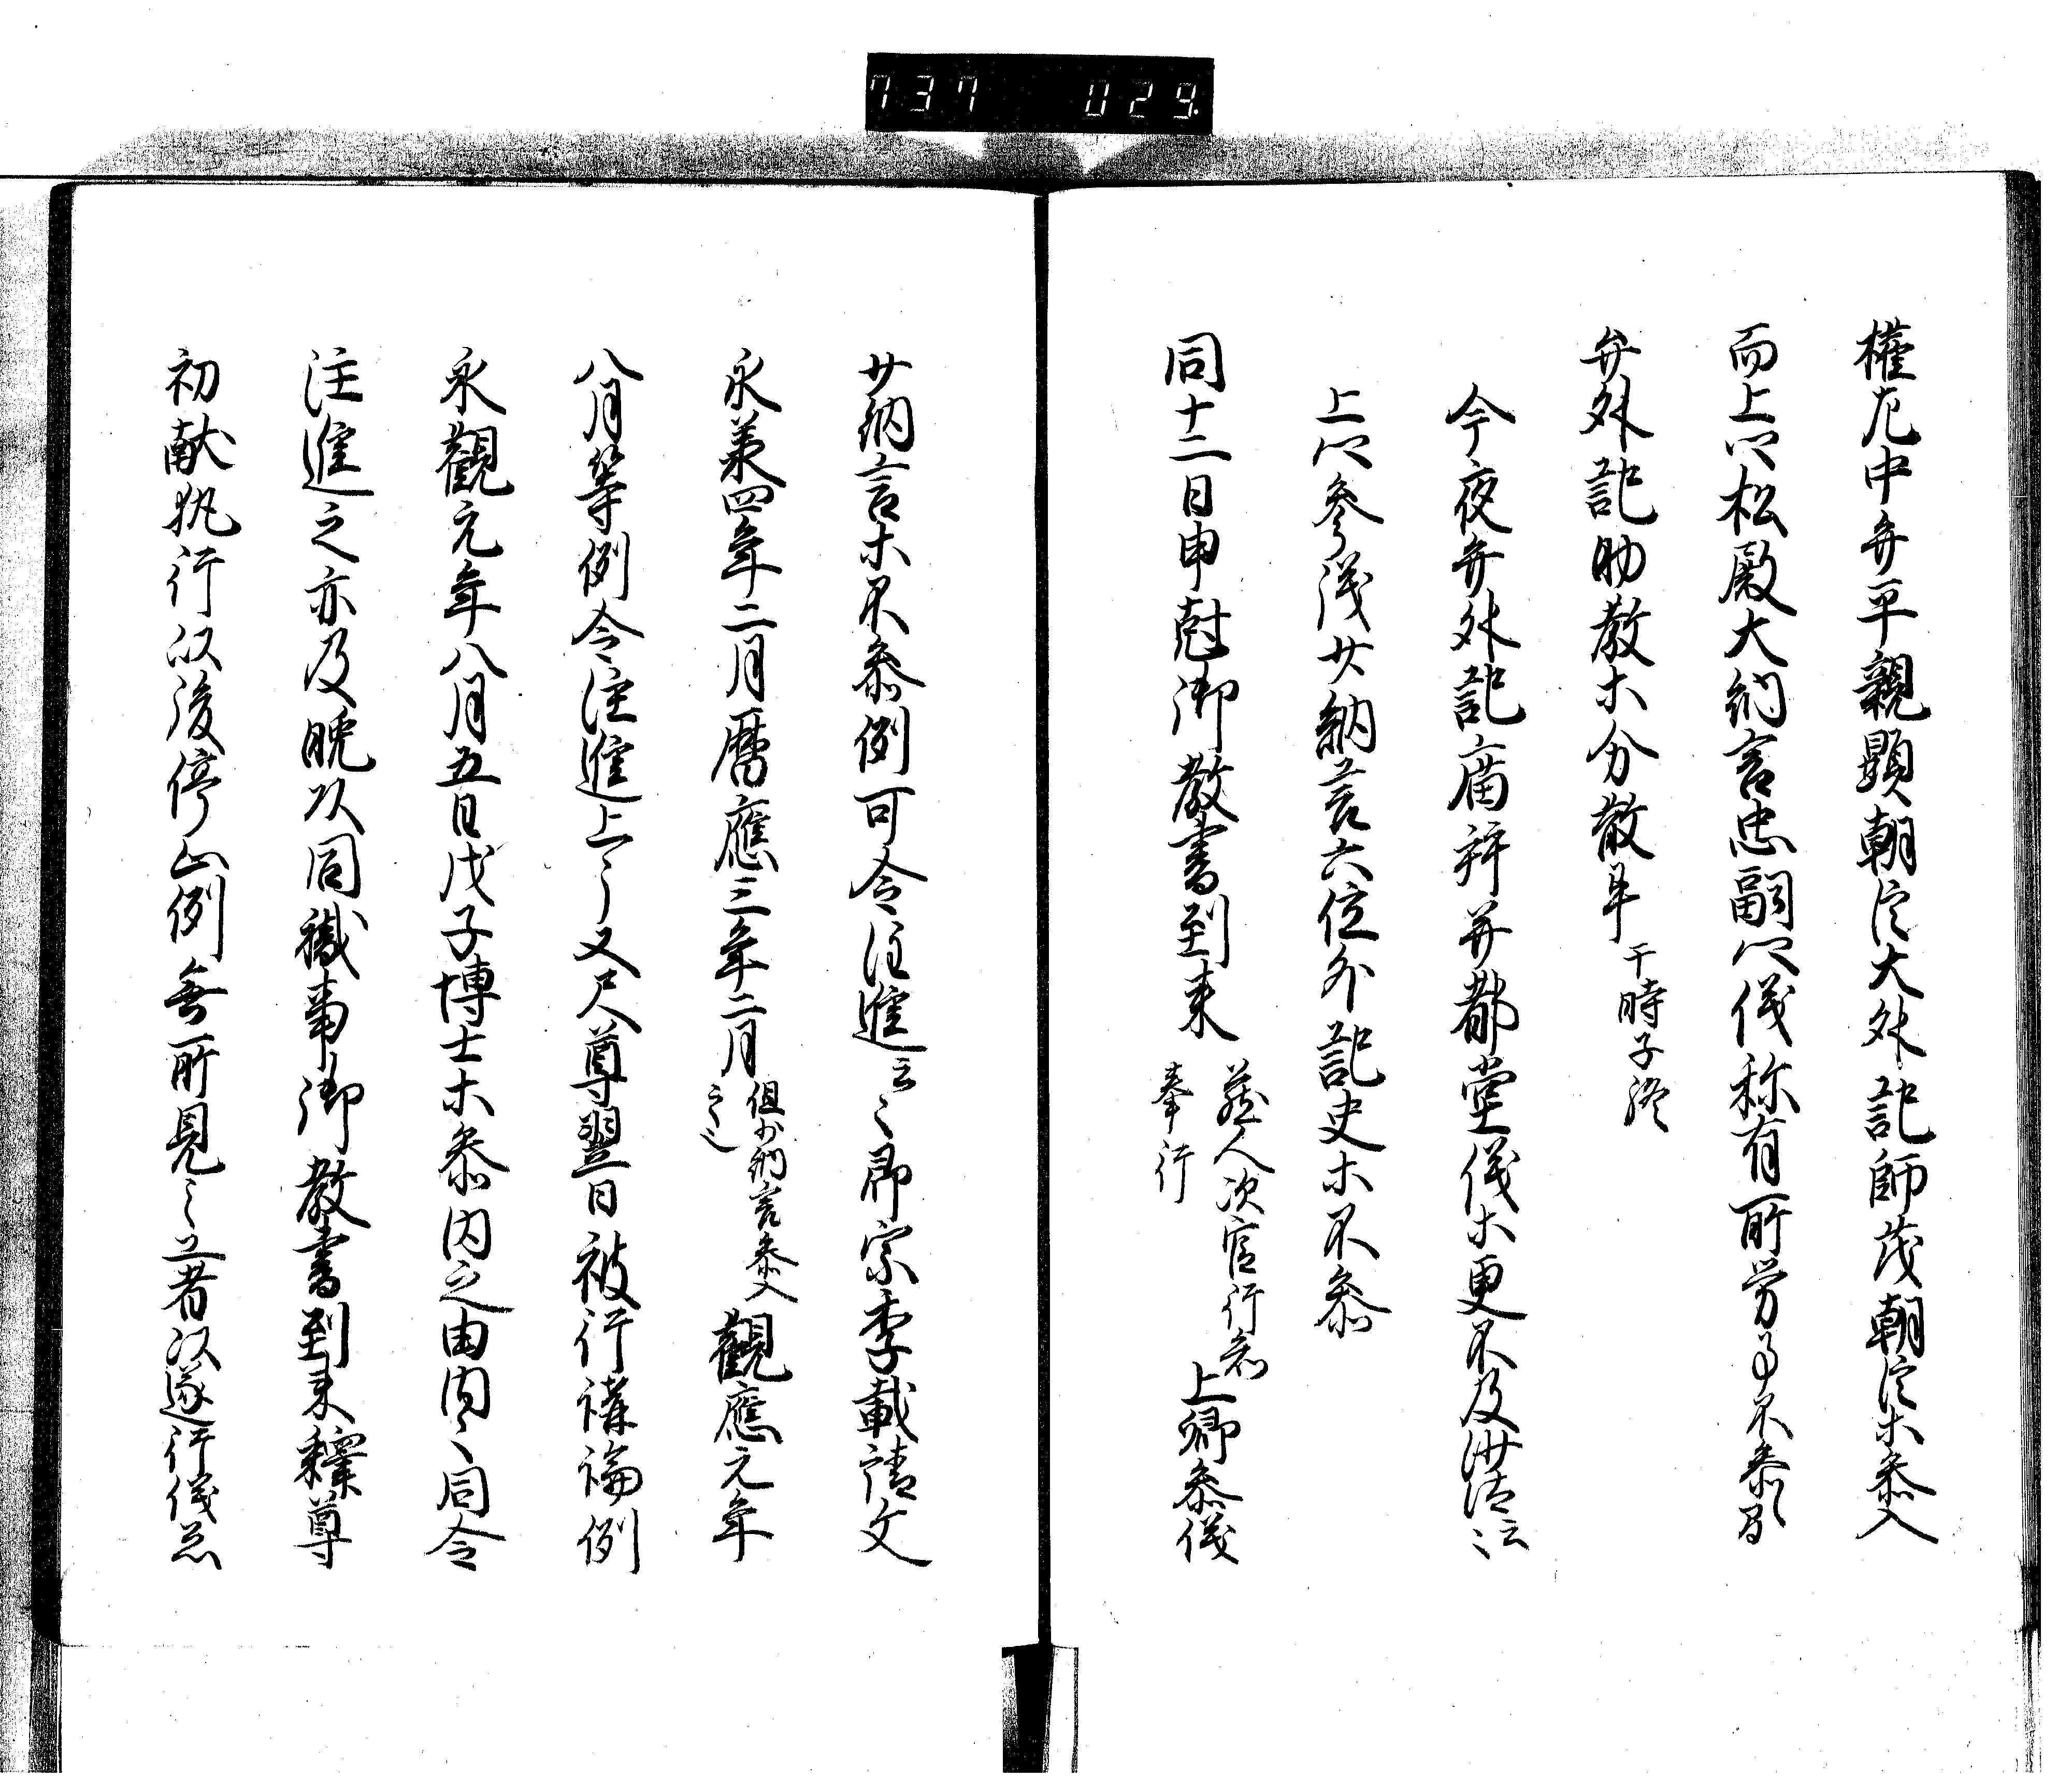 737 029
權左中弁平親顕朝臣大外記師茂朝臣木参入
而上卿松殿大納言忠嗣卿儀称有所労事不参
弁外記助教木分散畢 于時子終
今夜弁外記庿拝并都堂儀木更不及沙汰云々
上卿参議少納言六位外記史木不参
同十二日申尅御教書到来 蔵人次官行知奉行 上卿参儀
少納言木不参例可令注進云々即宗季載請文
永兼四年二月暦應三年二月 但少納言参入云々 觀應元年
八月等例令注進上了又尺尊翌日被行講論例
永觀元年八月五日戊子博士木参内之由内々同令
注進之亦及晩以同職事御教書到来釋尊
初献執行以後停止例無所見云々者以遂行儀忩